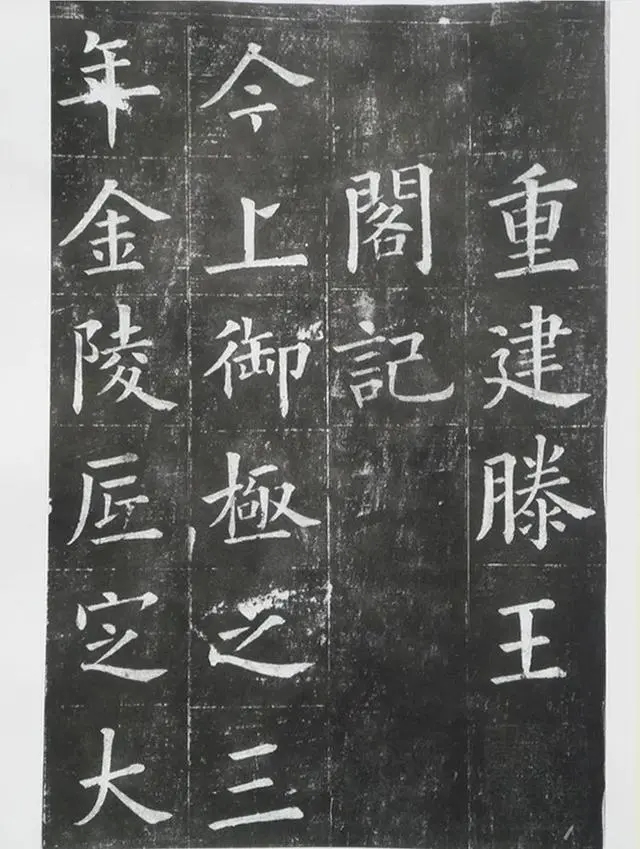 重建滕王
閣記
今上御極之三
年金陵厎㝎大